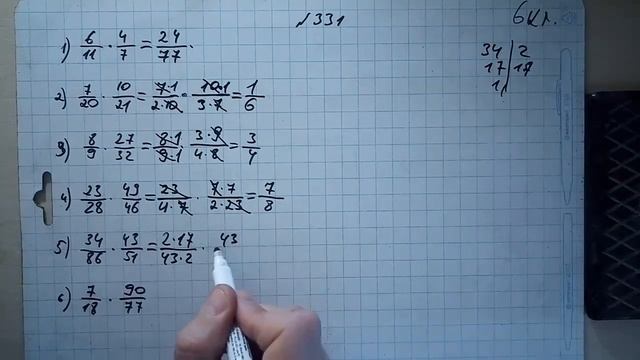 №331
6 кл.
34 | 2
17 | 17
1
1) 6/11 · 4/7 = 24/77.
2) 7/20 · 10/21 = 7·1/2·10 · 10·1/3·7 = 1/6
3) 8/9 · 27/32 = 8·1/9·1 · 3·9/4·8 = 3/4
4) 23/28 · 49/46 = 23/4·7 · 7·7/2·23 = 7/8
5) 34/86 · 43/51 = 2·17/43·2 · 43
6) 7/18 · 90/77